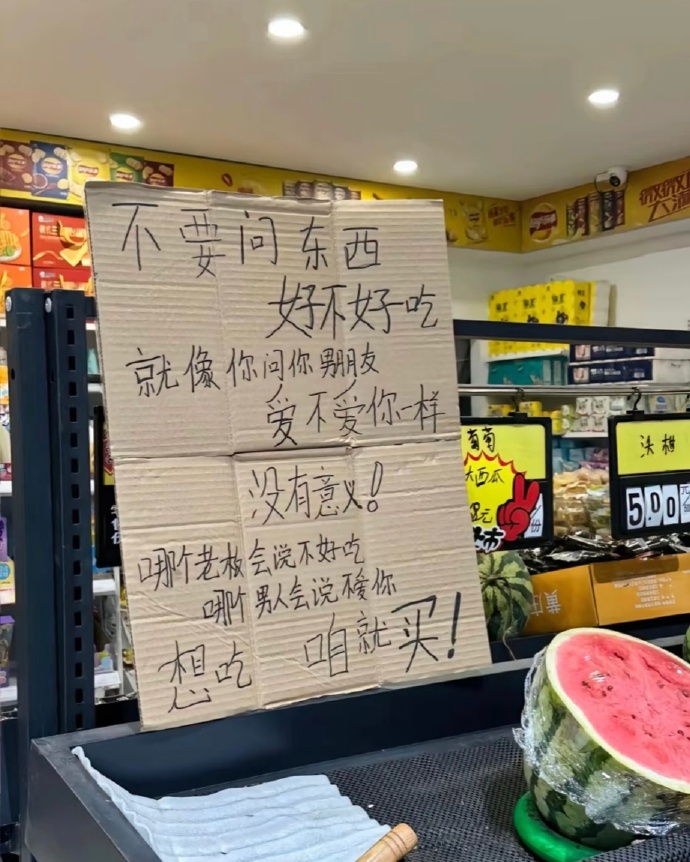 不要问东西
好不好吃
就像你问你男朋友
爱不爱你一样
没有意义！
哪个老板会说不好吃
哪个男人会说不爱你
想吃 咱就买！
葡萄
大西瓜
元
份
沃柑
5.00
元